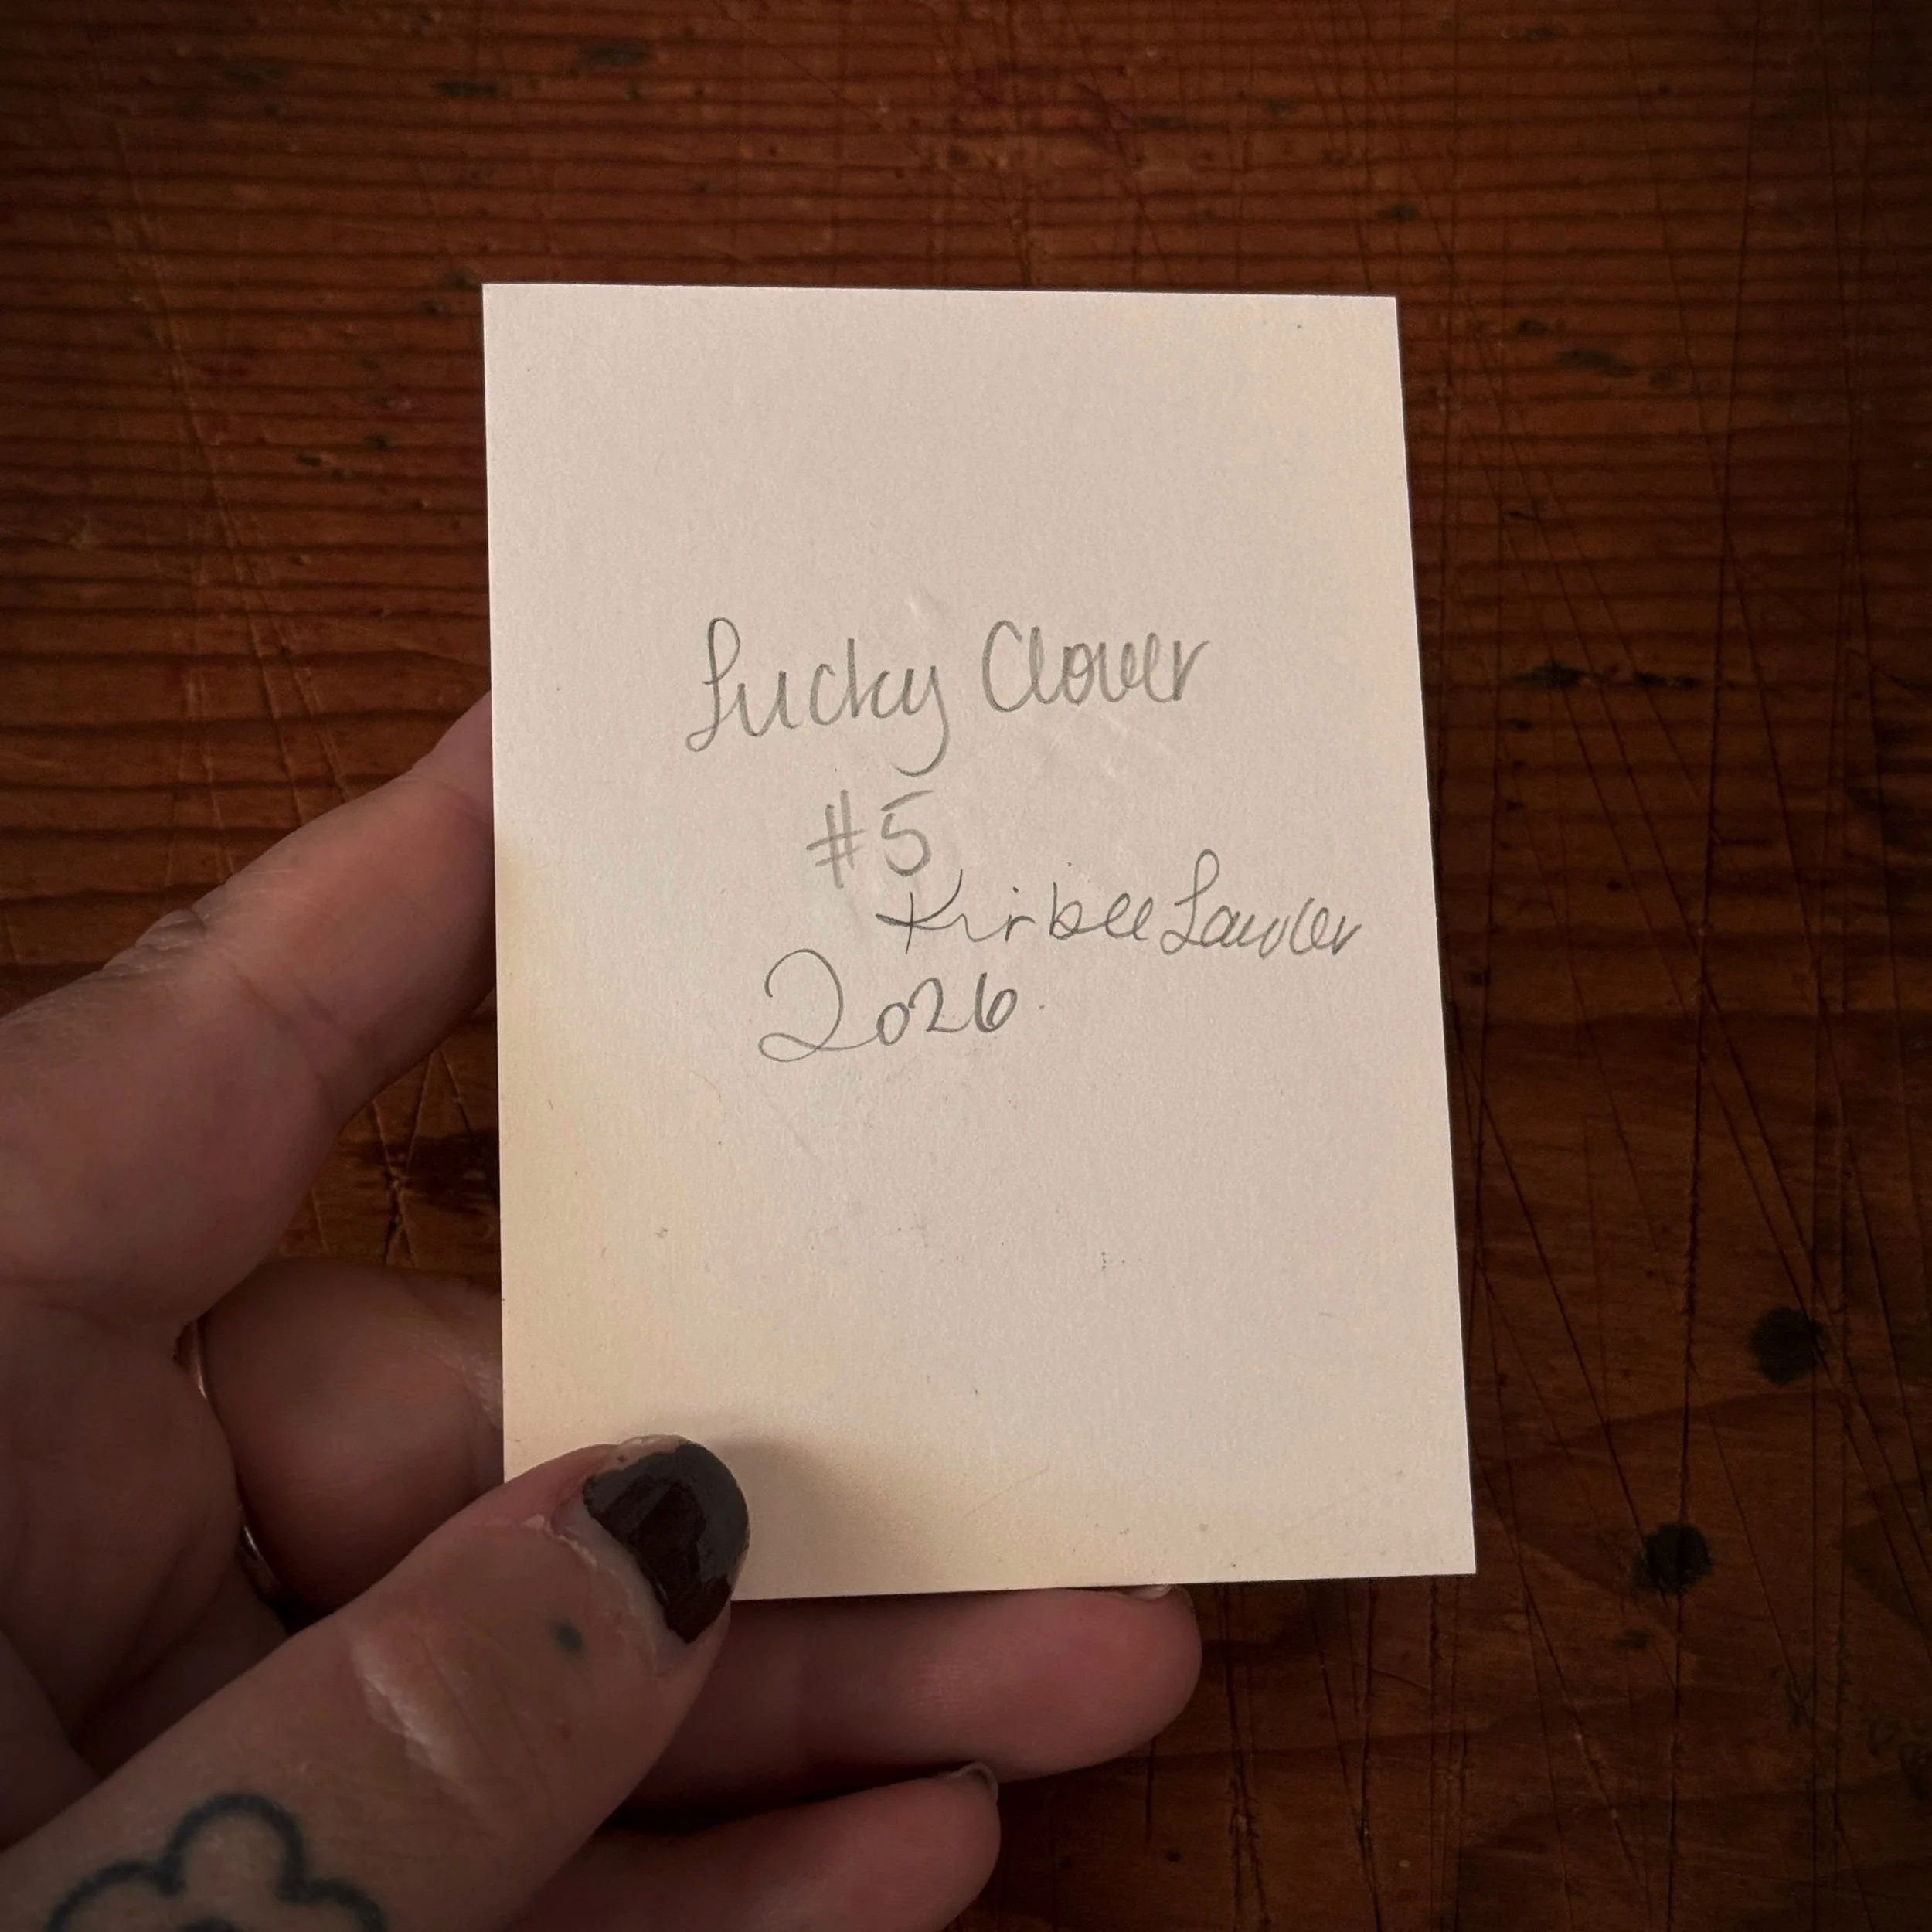 Lucky Clover
#5
Kirbee Lawler
2026